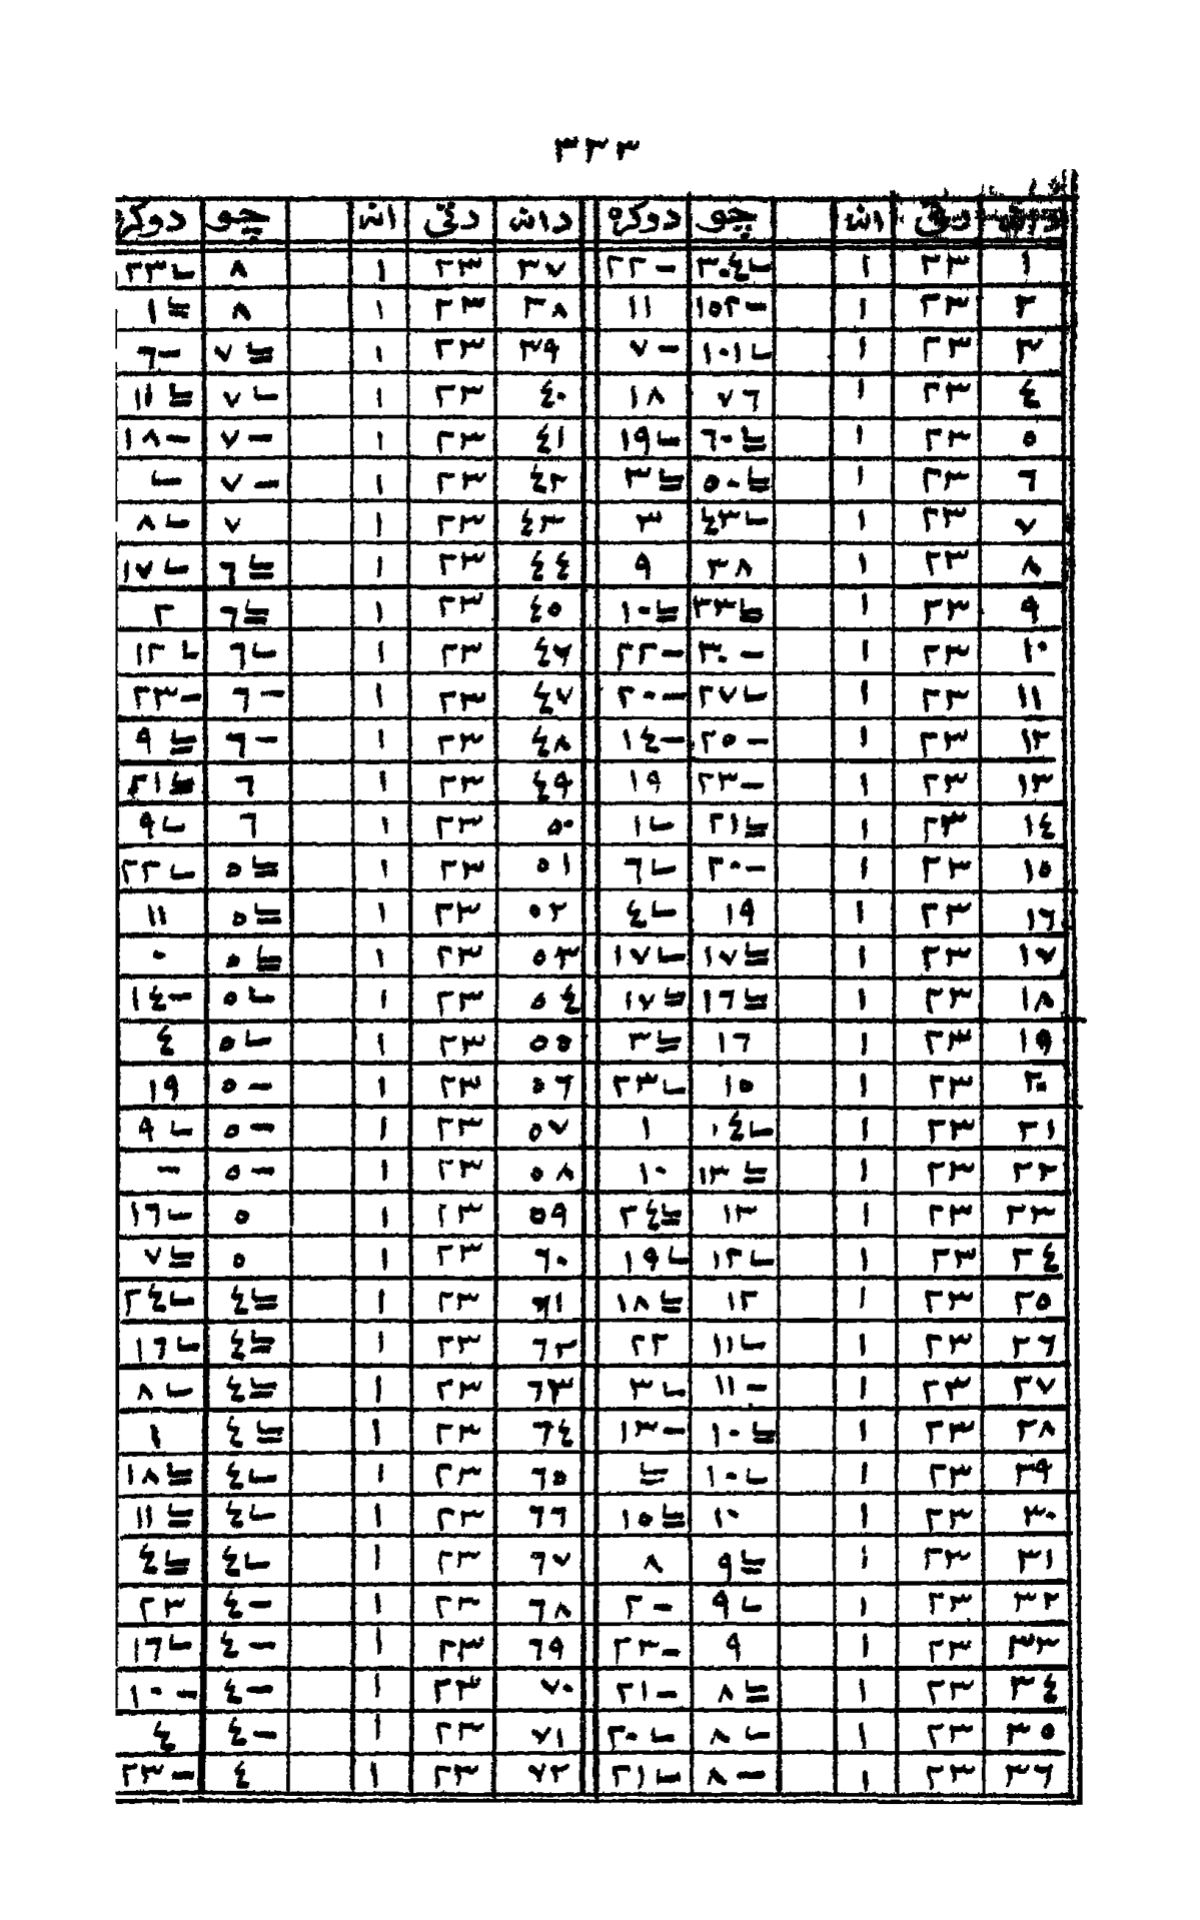 ٣٣٣
انه چو دوكره دانه دقي انه چو دوكره
١ ٢٣ ١ ∟٣٠٤ -٢٢ ٣٧ ٢٣ ١ ٨ ∟٢٣
٢ ٢٣ ١ -١٥٢ ١١ ٣٨ ٢٣ ١ ٨ ≒١
٣ ٢٣ ١ ∟١٠١ -٧ ٣٩ ٢٣ ١ ≒٧ -٦
٤ ٢٣ ١ ٧٦ ١٨ ٤٠ ٢٣ ١ ∟٧ ≒١١
٥ ٢٣ ١ ≒٦٠ ∟١٩ ٤١ ٢٣ ١ -٧ -١٨
٦ ٢٣ ١ ≒٥٠ ≒٣ ٤٢ ٢٣ ١ -٧ ∟
٧ ٢٣ ١ ∟٤٣ ٣ ٤٣ ٢٣ ١ ٧ ∟٨
٨ ٢٣ ١ ٣٨ ٩ ٤٤ ٢٣ ١ ≒٦ ∟١٧
٩ ٢٣ ١ ≒٣٣ ≒١٠ ٤٥ ٢٣ ١ ≒٦ ٢
١٠ ٢٣ ١ -٣٠ -٢٢ ٤٦ ٢٣ ١ ∟٦ ∟١٢
١١ ٢٣ ١ ∟٢٧ -٢٠ ٤٧ ٢٣ ١ -٦ -٢٣
١٢ ٢٣ ١ -٢٥ -١٤ ٤٨ ٢٣ ١ -٦ ≒٩
١٣ ٢٣ ١ -٢٣ ١٩ ٤٩ ٢٣ ١ ٦ ≒٢١
١٤ ٢٣ ١ ≒٢١ ∟١ ٥٠ ٢٣ ١ ٦ ∟٩
١٥ ٢٣ ١ -٢٠ ∟٦ ٥١ ٢٣ ١ ≒٥ ∟٢٢
١٦ ٢٣ ١ ١٩ ∟٤ ٥٢ ٢٣ ١ ≒٥ ١١
١٧ ٢٣ ١ ≒١٧ ∟١٧ ٥٣ ٢٣ ١ ≒٥ ٠
١٨ ٢٣ ١ ≒١٦ ≒١٧ ٥٤ ٢٣ ١ ∟٥ -١٤
١٩ ٢٣ ١ ١٦ ≒٣ ٥٥ ٢٣ ١ ∟٥ ٤
٢٠ ٢٣ ١ ١٥ ∟٢٣ ٥٦ ٢٣ ١ -٥ ١٩
٢١ ٢٣ ١ ∟١٤ ١ ٥٧ ٢٣ ١ -٥ ∟٩
٢٢ ٢٣ ١ ≒١٣ ١٠ ٥٨ ٢٣ ١ -٥ -
٢٣ ٢٣ ١ ١٣ ≒٢٤ ٥٩ ٢٣ ١ ٥ ∟١٦
٢٤ ٢٣ ١ ∟١٢ ∟١٩ ٦٠ ٢٣ ١ ٥ ≒٧
٢٥ ٢٣ ١ ١٢ ≒١٨ ٦١ ٢٣ ١ ≒٤ ∟٢٤
٢٦ ٢٣ ١ ∟١١ ٢٢ ٦٢ ٢٣ ١ ≒٤ ∟١٦
٢٧ ٢٣ ١ -١١ ∟٣ ٦٣ ٢٣ ١ ≒٤ ∟٨
٢٨ ٢٣ ١ ≒١٠ -١٣ ٦٤ ٢٣ ١ ≒٤ ١
٢٩ ٢٣ ١ ∟١٠ ≒ ٦٥ ٢٣ ١ ∟٤ ≒١٨
٣٠ ٢٣ ١ ١٠ ≒١٥ ٦٦ ٢٣ ١ ∟٤ ≒١١
٣١ ٢٣ ١ ≒٩ ٨ ٦٧ ٢٣ ١ ∟٤ ≒٤
٣٢ ٢٣ ١ ∟٩ -٢ ٦٨ ٢٣ ١ -٤ ٢٣
٣٣ ٢٣ ١ ٩ -٢٣ ٦٩ ٢٣ ١ -٤ ∟١٦
٣٤ ٢٣ ١ ≒٨ -٢١ ٧٠ ٢٣ ١ -٤ -١٠
٣٥ ٢٣ ١ ∟٨ ∟٢٠ ٧١ ٢٣ ١ -٤ ٤
٣٦ ٢٣ ١ -٨ ∟٢١ ٧٢ ٢٣ ١ ٤ -٢٣